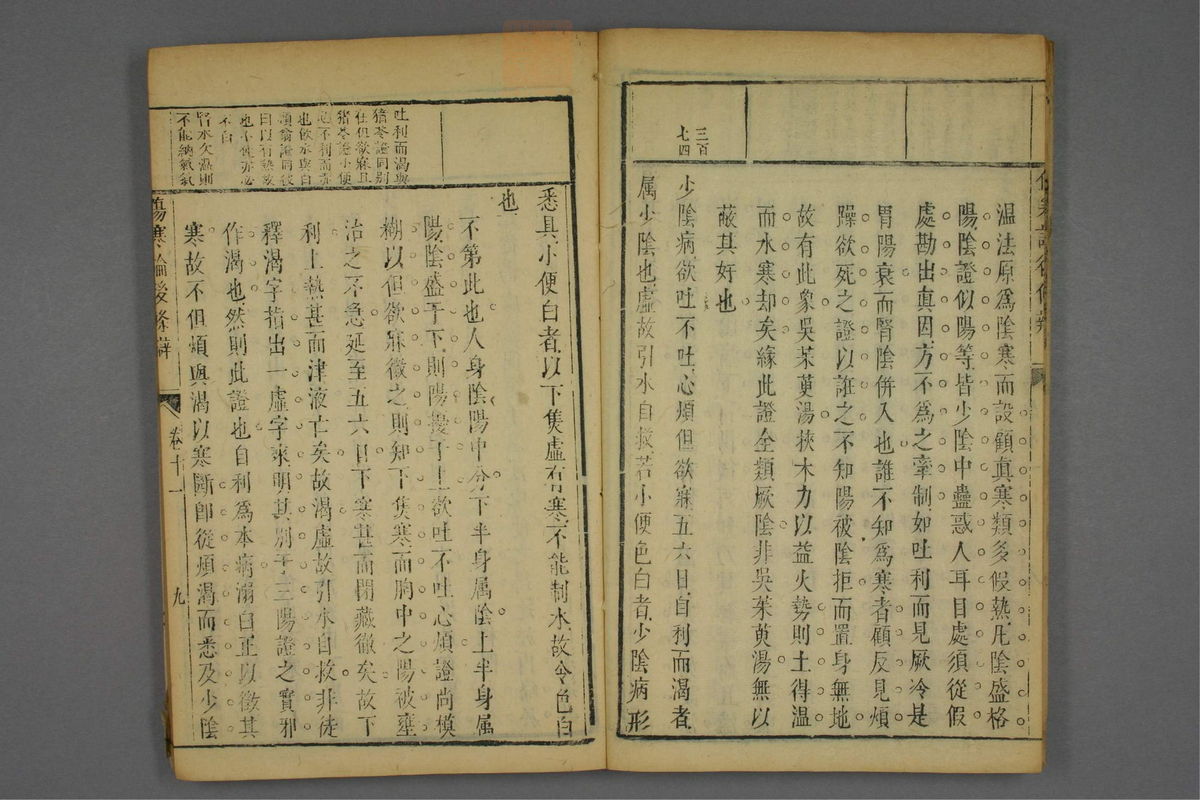 三百
七四
温法原爲陰寒而設顧眞寒類多假熱凡陰盛格
陽陰證似陽等皆少陰中蠱惑人耳目處須從假
處勘出眞因方不爲之牽制如吐利而見厥冷是
胃陽衰而腎陰併入也誰不知爲寒者顧反見煩
躁欲死之證以誑之不知陽被陰拒而置身無地
故有此象吳茱萸湯挾木力以益火勢則土得温
而水寒却矣緣此證全類厥陰非吳茱萸湯無以
蔽其好也
少陰病欲吐不吐心煩但欲寐五六日自利而渴者
属少陰也虛故引水自救若小便色白者少陰病形
吐利而渴與
猪苓證同别
在但欲寐且
猪苓證小便
不利而亦
也飲水與白
頭翁證同彼
曰以有熱故
也小便亦必
不白
腎水欠温則
不能納氣氣
悉具小便白者以下焦虛有寒不能制水故令色白
也
不第此也人身陰陽中分下半身属陰上半身属
陽陰盛于下則陽擾于上欲吐不吐心煩證尚模
糊以但欲寐徵之則知下焦寒而胸中之陽被壅
治之不急延至五六日下寒甚而閉藏徹矣故下
利上熱甚而津液亡矣故渴虛故引水自救非徒
釋渴字指出一虛字來明其别于三陽證之實邪
作渴也然則此證也自利爲本病溺白正以徵其
寒故不但煩與渴以寒斷卽從煩渴而悉及少陰
傷寒論後條辨
卷十一
九